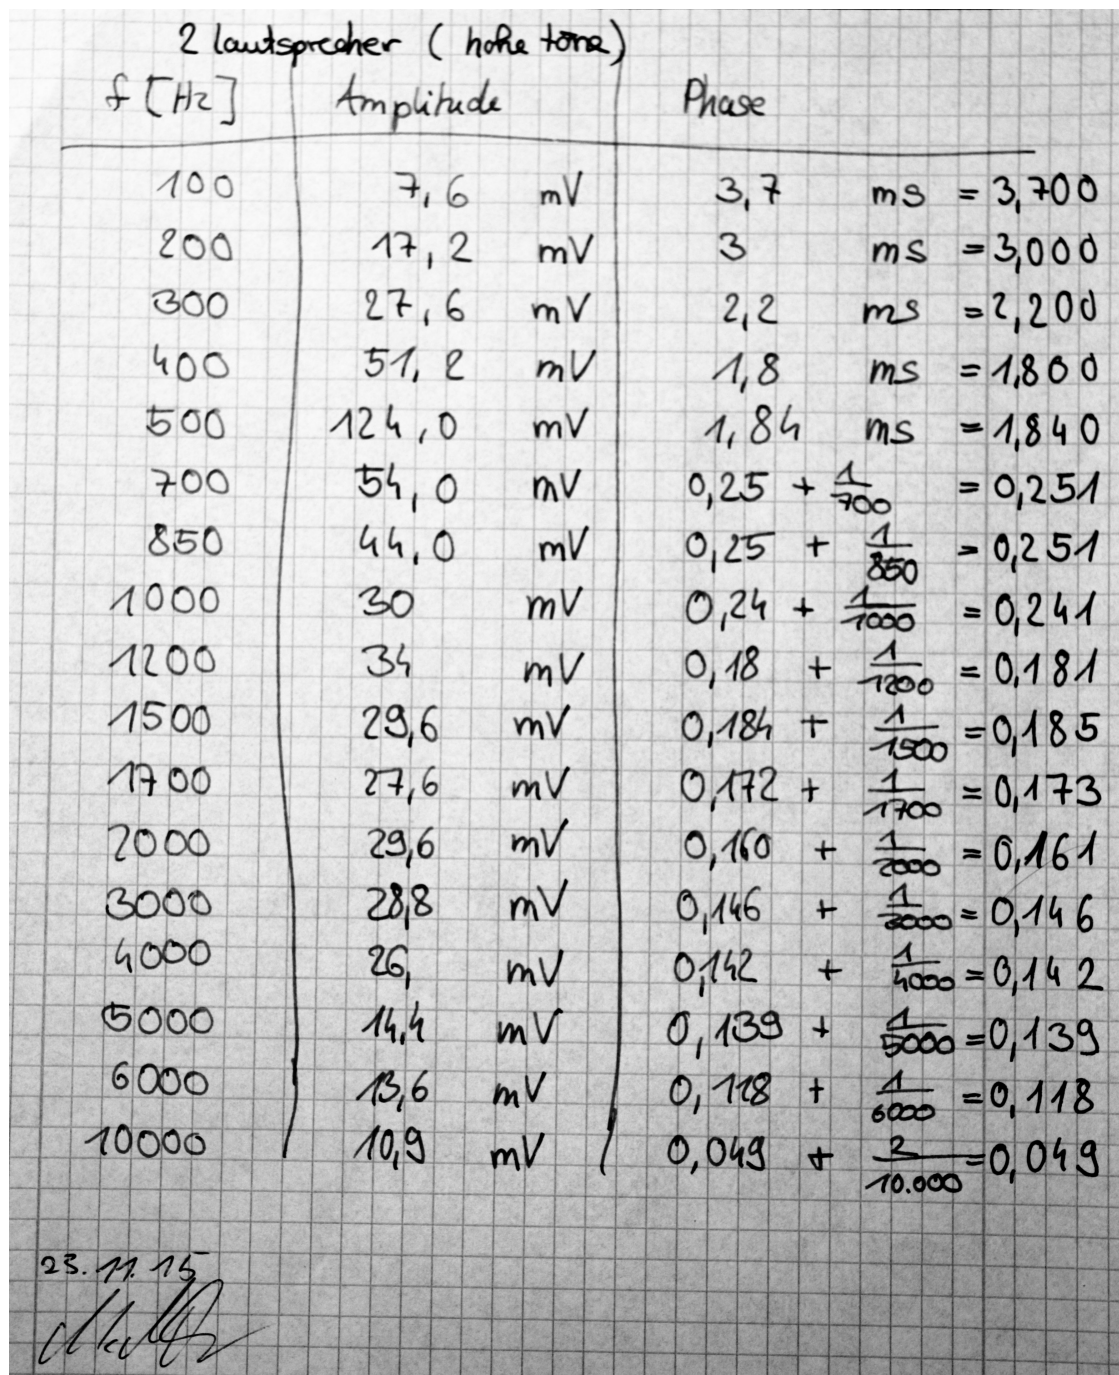 2 lautsprecher ( hohe töne )
f [Hz] Amplitude Phase
100 7,6 mV 3,7 ms = 3,700
200 17,2 mV 3 ms = 3,000
300 27,6 mV 2,2 ms = 2,200
400 51,2 mV 1,8 ms = 1,800
500 124,0 mV 1,84 ms = 1,840
700 54,0 mV 0,25 + 1/700 = 0,251
850 44,0 mV 0,25 + 1/850 = 0,251
1000 30 mV 0,24 + 1/1000 = 0,241
1200 34 mV 0,18 + 1/1200 = 0,181
1500 29,6 mV 0,184 + 1/1500 = 0,185
1700 27,6 mV 0,172 + 1/1700 = 0,173
2000 29,6 mV 0,160 + 1/2000 = 0,161
3000 28,8 mV 0,146 + 1/3000 = 0,146
4000 26, mV 0,142 + 1/4000 = 0,142
5000 14,4 mV 0,139 + 1/5000 = 0,139
6000 13,6 mV 0,118 + 1/6000 = 0,118
10000 10,9 mV 0,049 + 2/10.000 = 0,049
23.11.15